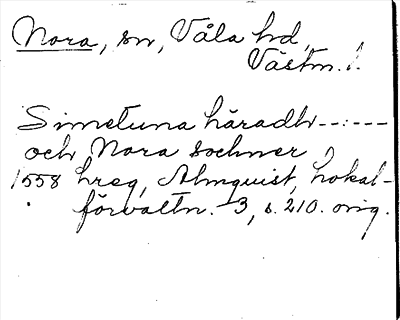 Nora, sn, Våla hd,
Västm. l.
Simetuna häradh -----
och Nora sochner
1558 hreg, Almquist, Lokal-
förvaltn. 3, s. 210. orig.